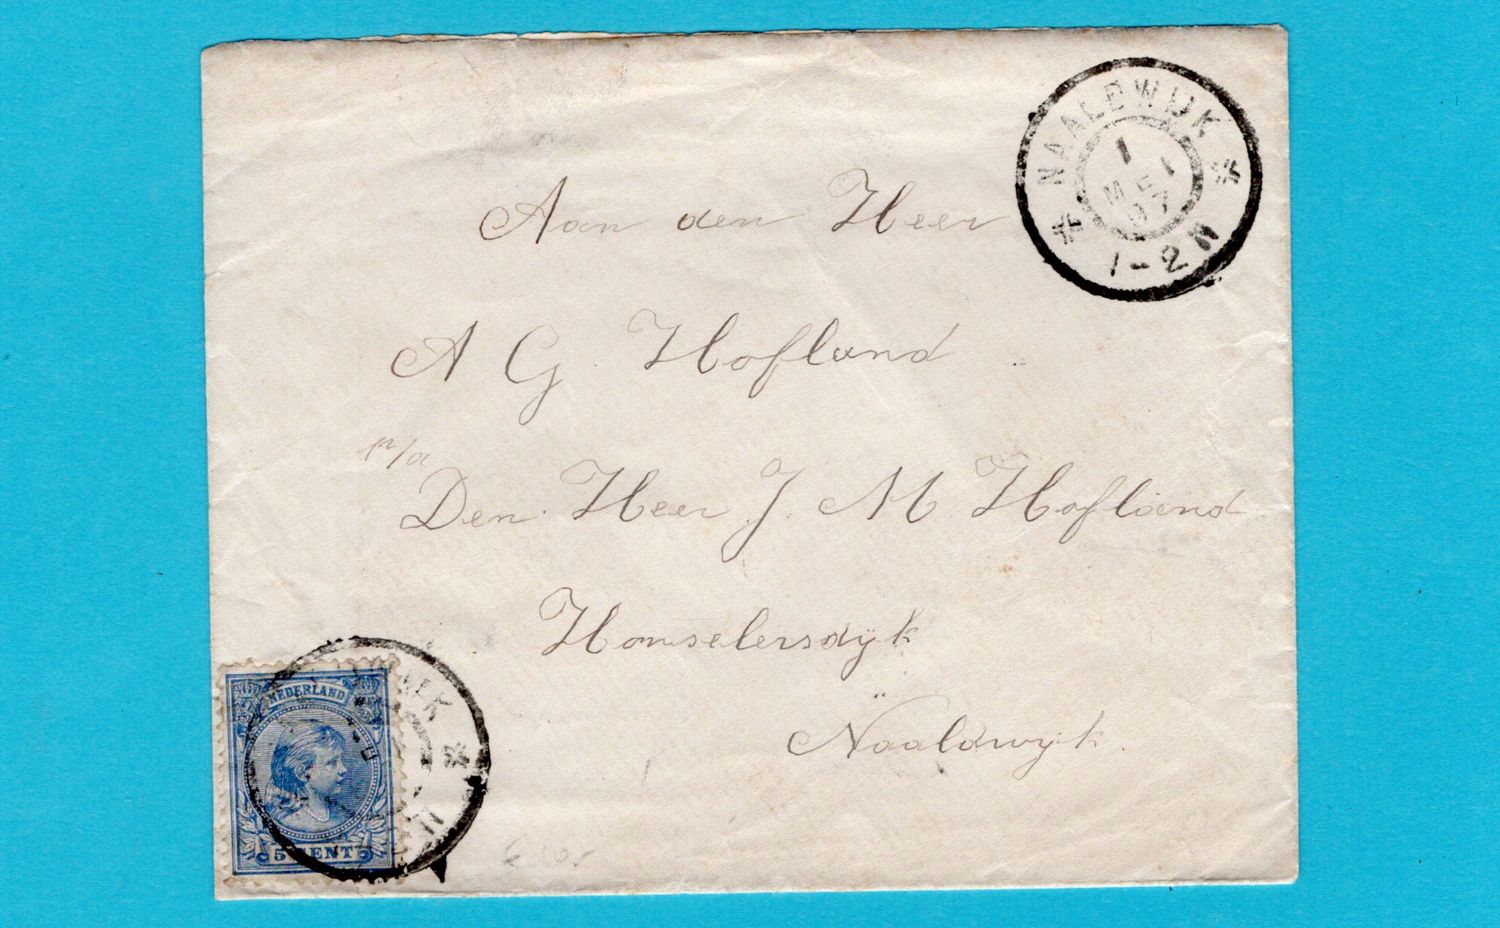 NAALDWIJK
1
MEI
97
1-2N
Aan den Heer
A G Hofland
p/a
Den Heer J. M Hofland
Honselersdijk
Naaldwijk.
NEDERLAND
5 CENT